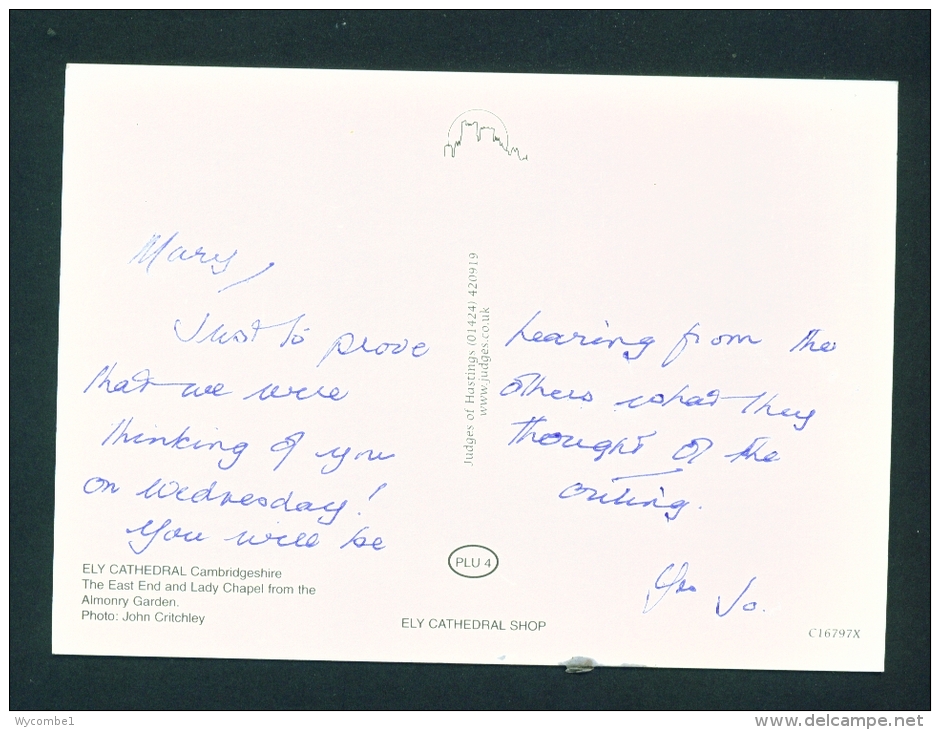 Mary,
Just to prove
that we were
thinking of you
on Wednesday!
You will be
hearing from the
others what they
thought of the
outing.
Jo.
Judges of Hastings (01424) 420919
www.judges.co.uk
ELY CATHEDRAL Cambridgeshire
The East End and Lady Chapel from the
Almonry Garden.
Photo: John Critchley
PLU 4
ELY CATHEDRAL SHOP
C16797X
Wycombe1
www.delcampe.net